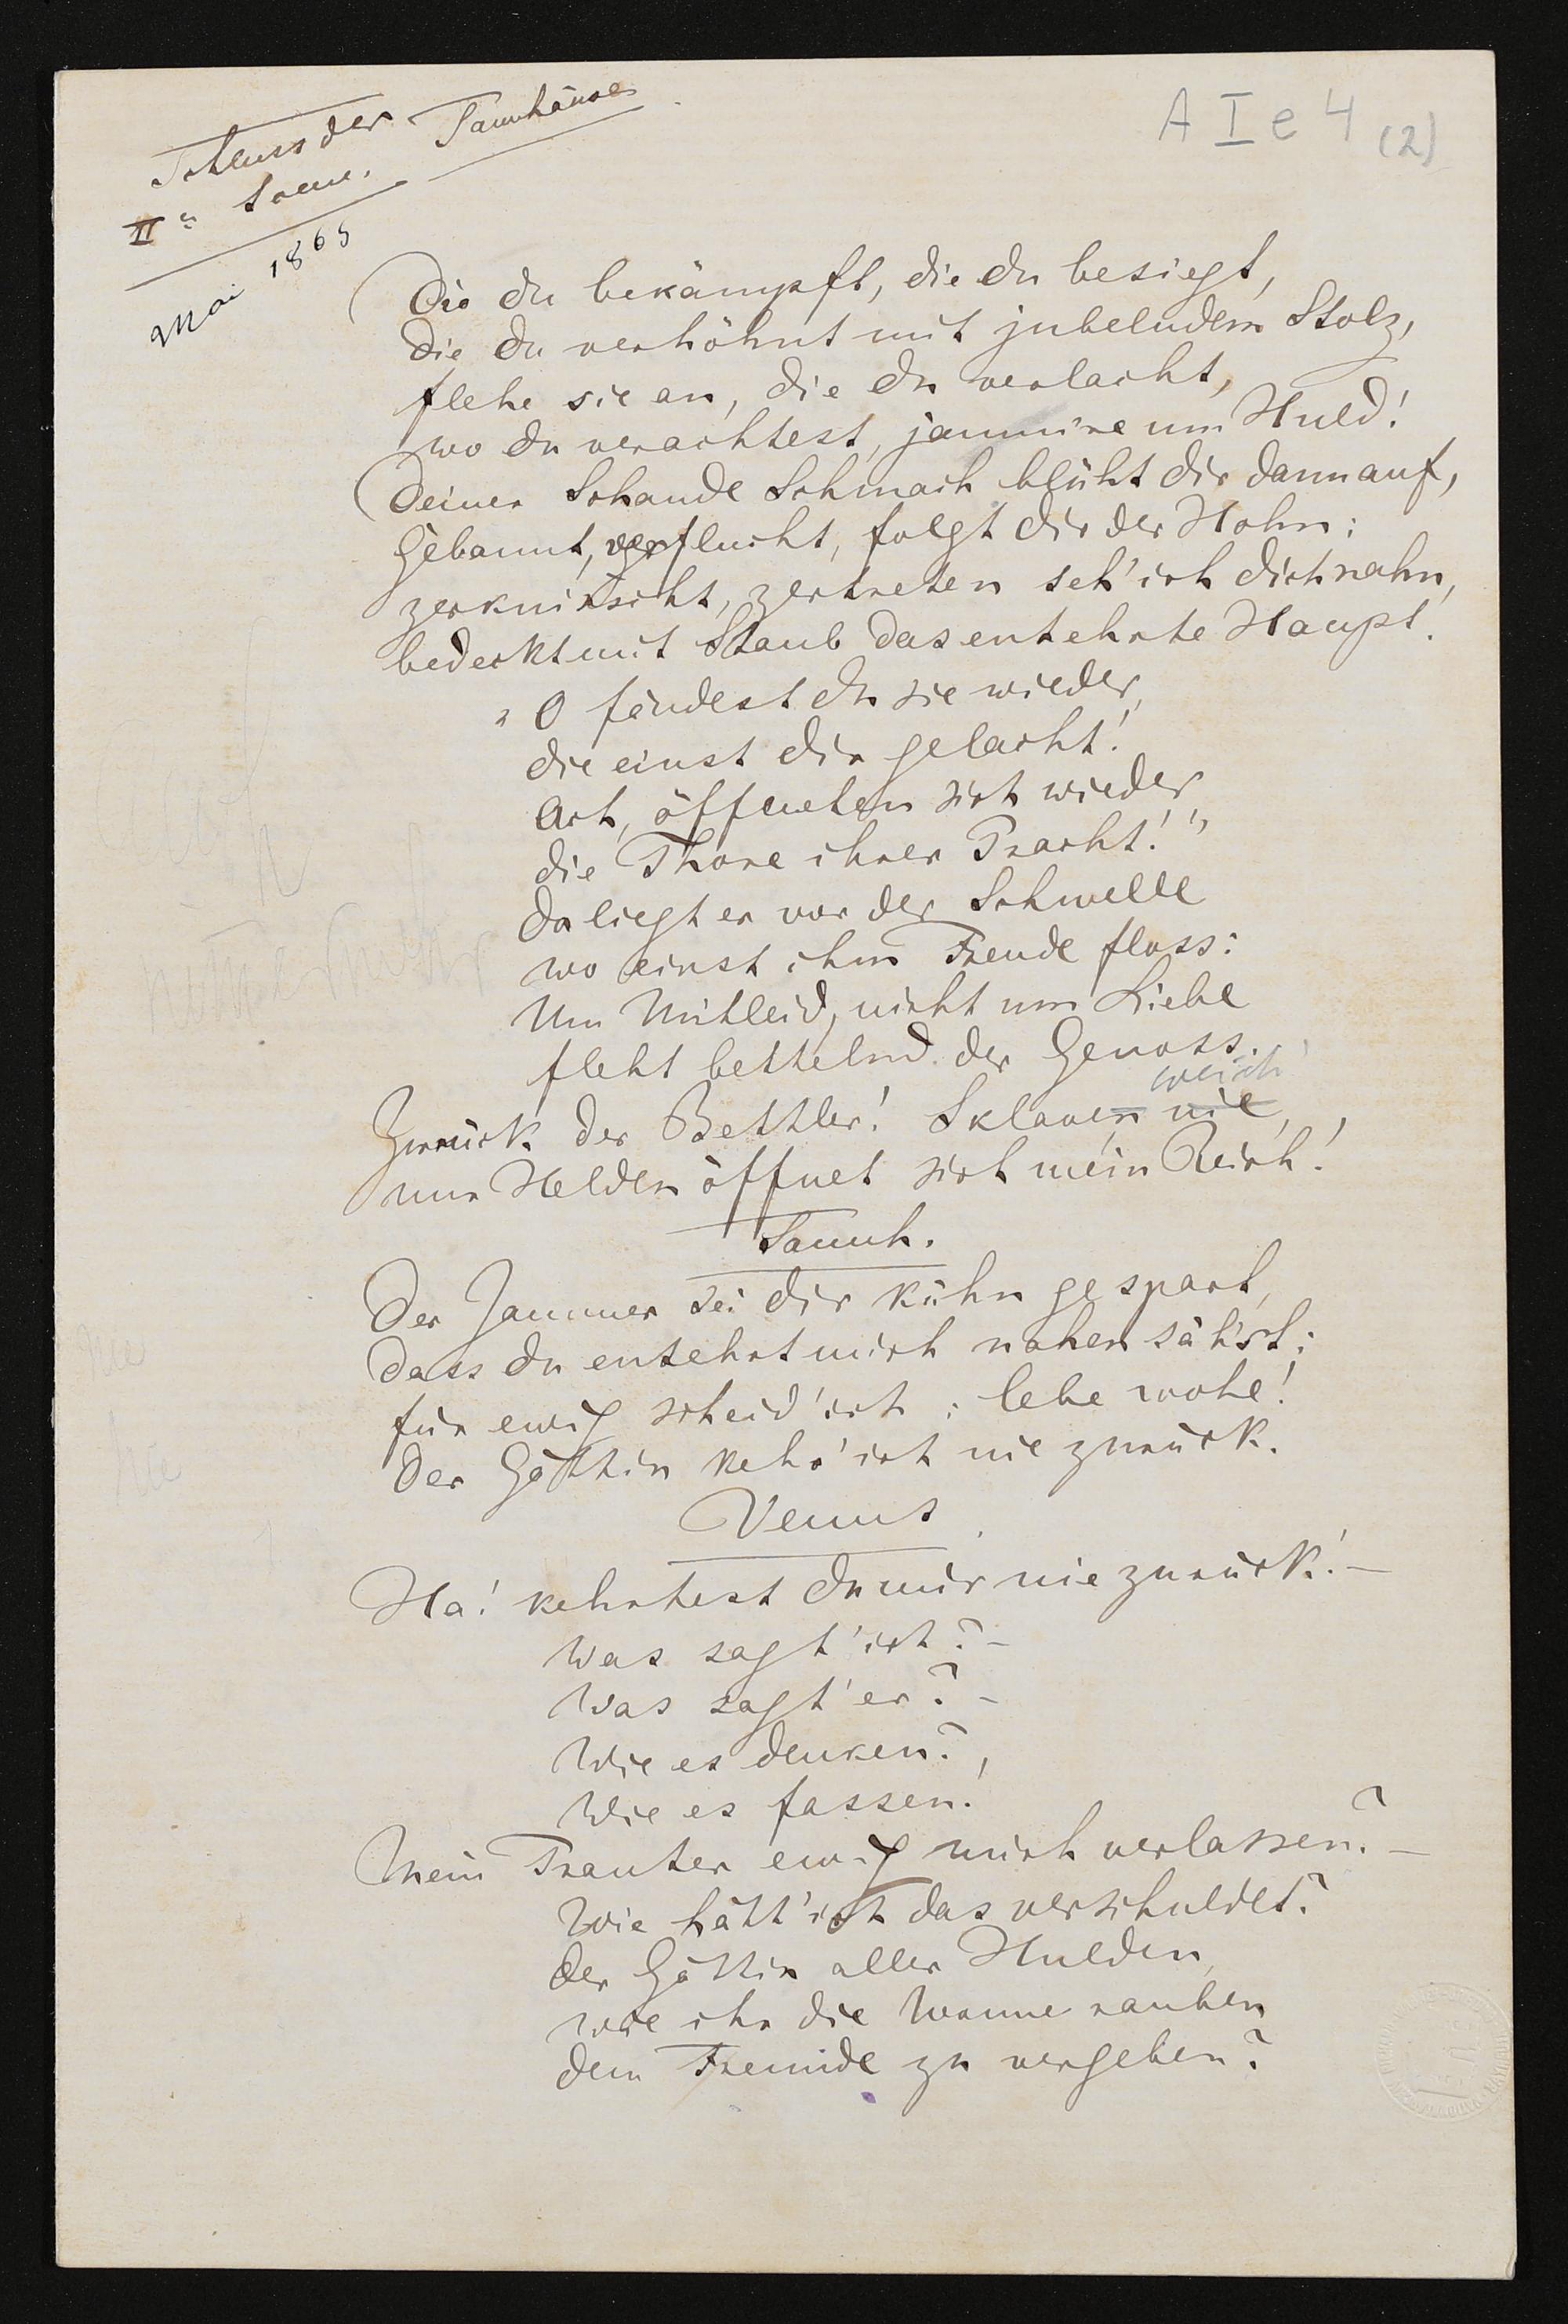 A I e 4 (2)
Schluss der Tannhäuser
IIn Scene.
Mai 1865
Die du bekämpft, die du besiegt,
die du verhöhnt mit jubelndem Stolz,
flehe sie an, die du verlacht,
wo du verachtest, jammre um Huld!
Deiner Schande Schmach blüht dir dann auf,
Gebannt, verflucht, folgt dir der Hohn:
zerknirscht, zertreten seh' ich dich nahn,
bedeckt mit Staub das entehrte Haupt.
„O fändest du sie wieder,
die einst dir gelacht!
Ach, öffneten sich wieder
die Thore ihrer Pracht!"
Da liegt er vor der Schwelle
wo einst ihm Freude floss:
Um Mitleid, nicht um Liebe
fleht bettelnd der Genoss.
weich'
Zurück der Bettler! Sklaven nie,
nur Helden öffnet sich mein Reich!
Tannh.
Der Jammer sei dir kühn gespart,
dass du entehrt mich nahen säh'st;
für ewig scheid' ich: lebe wohl!
Der Göttin kehr' ich nie zurück.
Venus
Ha! kehrtest du mir nie zurück! –
Was sagt' ich? –
Was sagt' er? –
Wie es denken?,
Wie es fassen!
Mein Trauter ewig mich verlassen? –
Wie hätt' ich das verschuldet?
der Göttin aller Hulden,
wie ihr die Wonne rauben
dem Freunde zu vergeben?